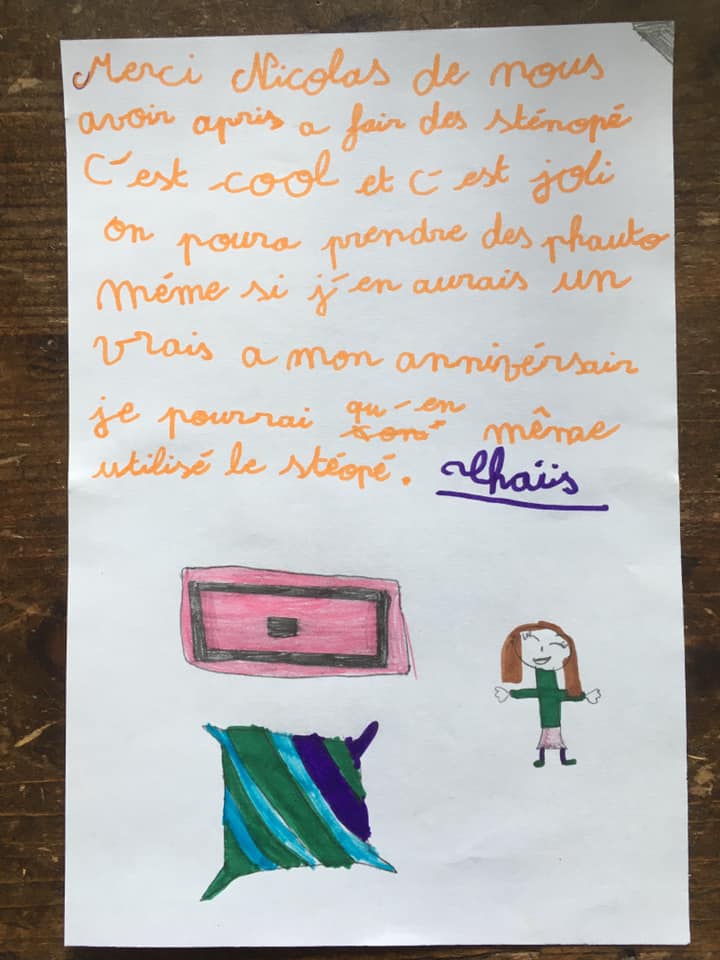 Merci Nicolas de nous
avoir apris a fair des sténopé
C'est cool et c'est joli
on poura prendre des phauto
méme si j'en aurais un
vrais a mon annivérsair
je pourrai qu-en même
utilisé le stéopé.